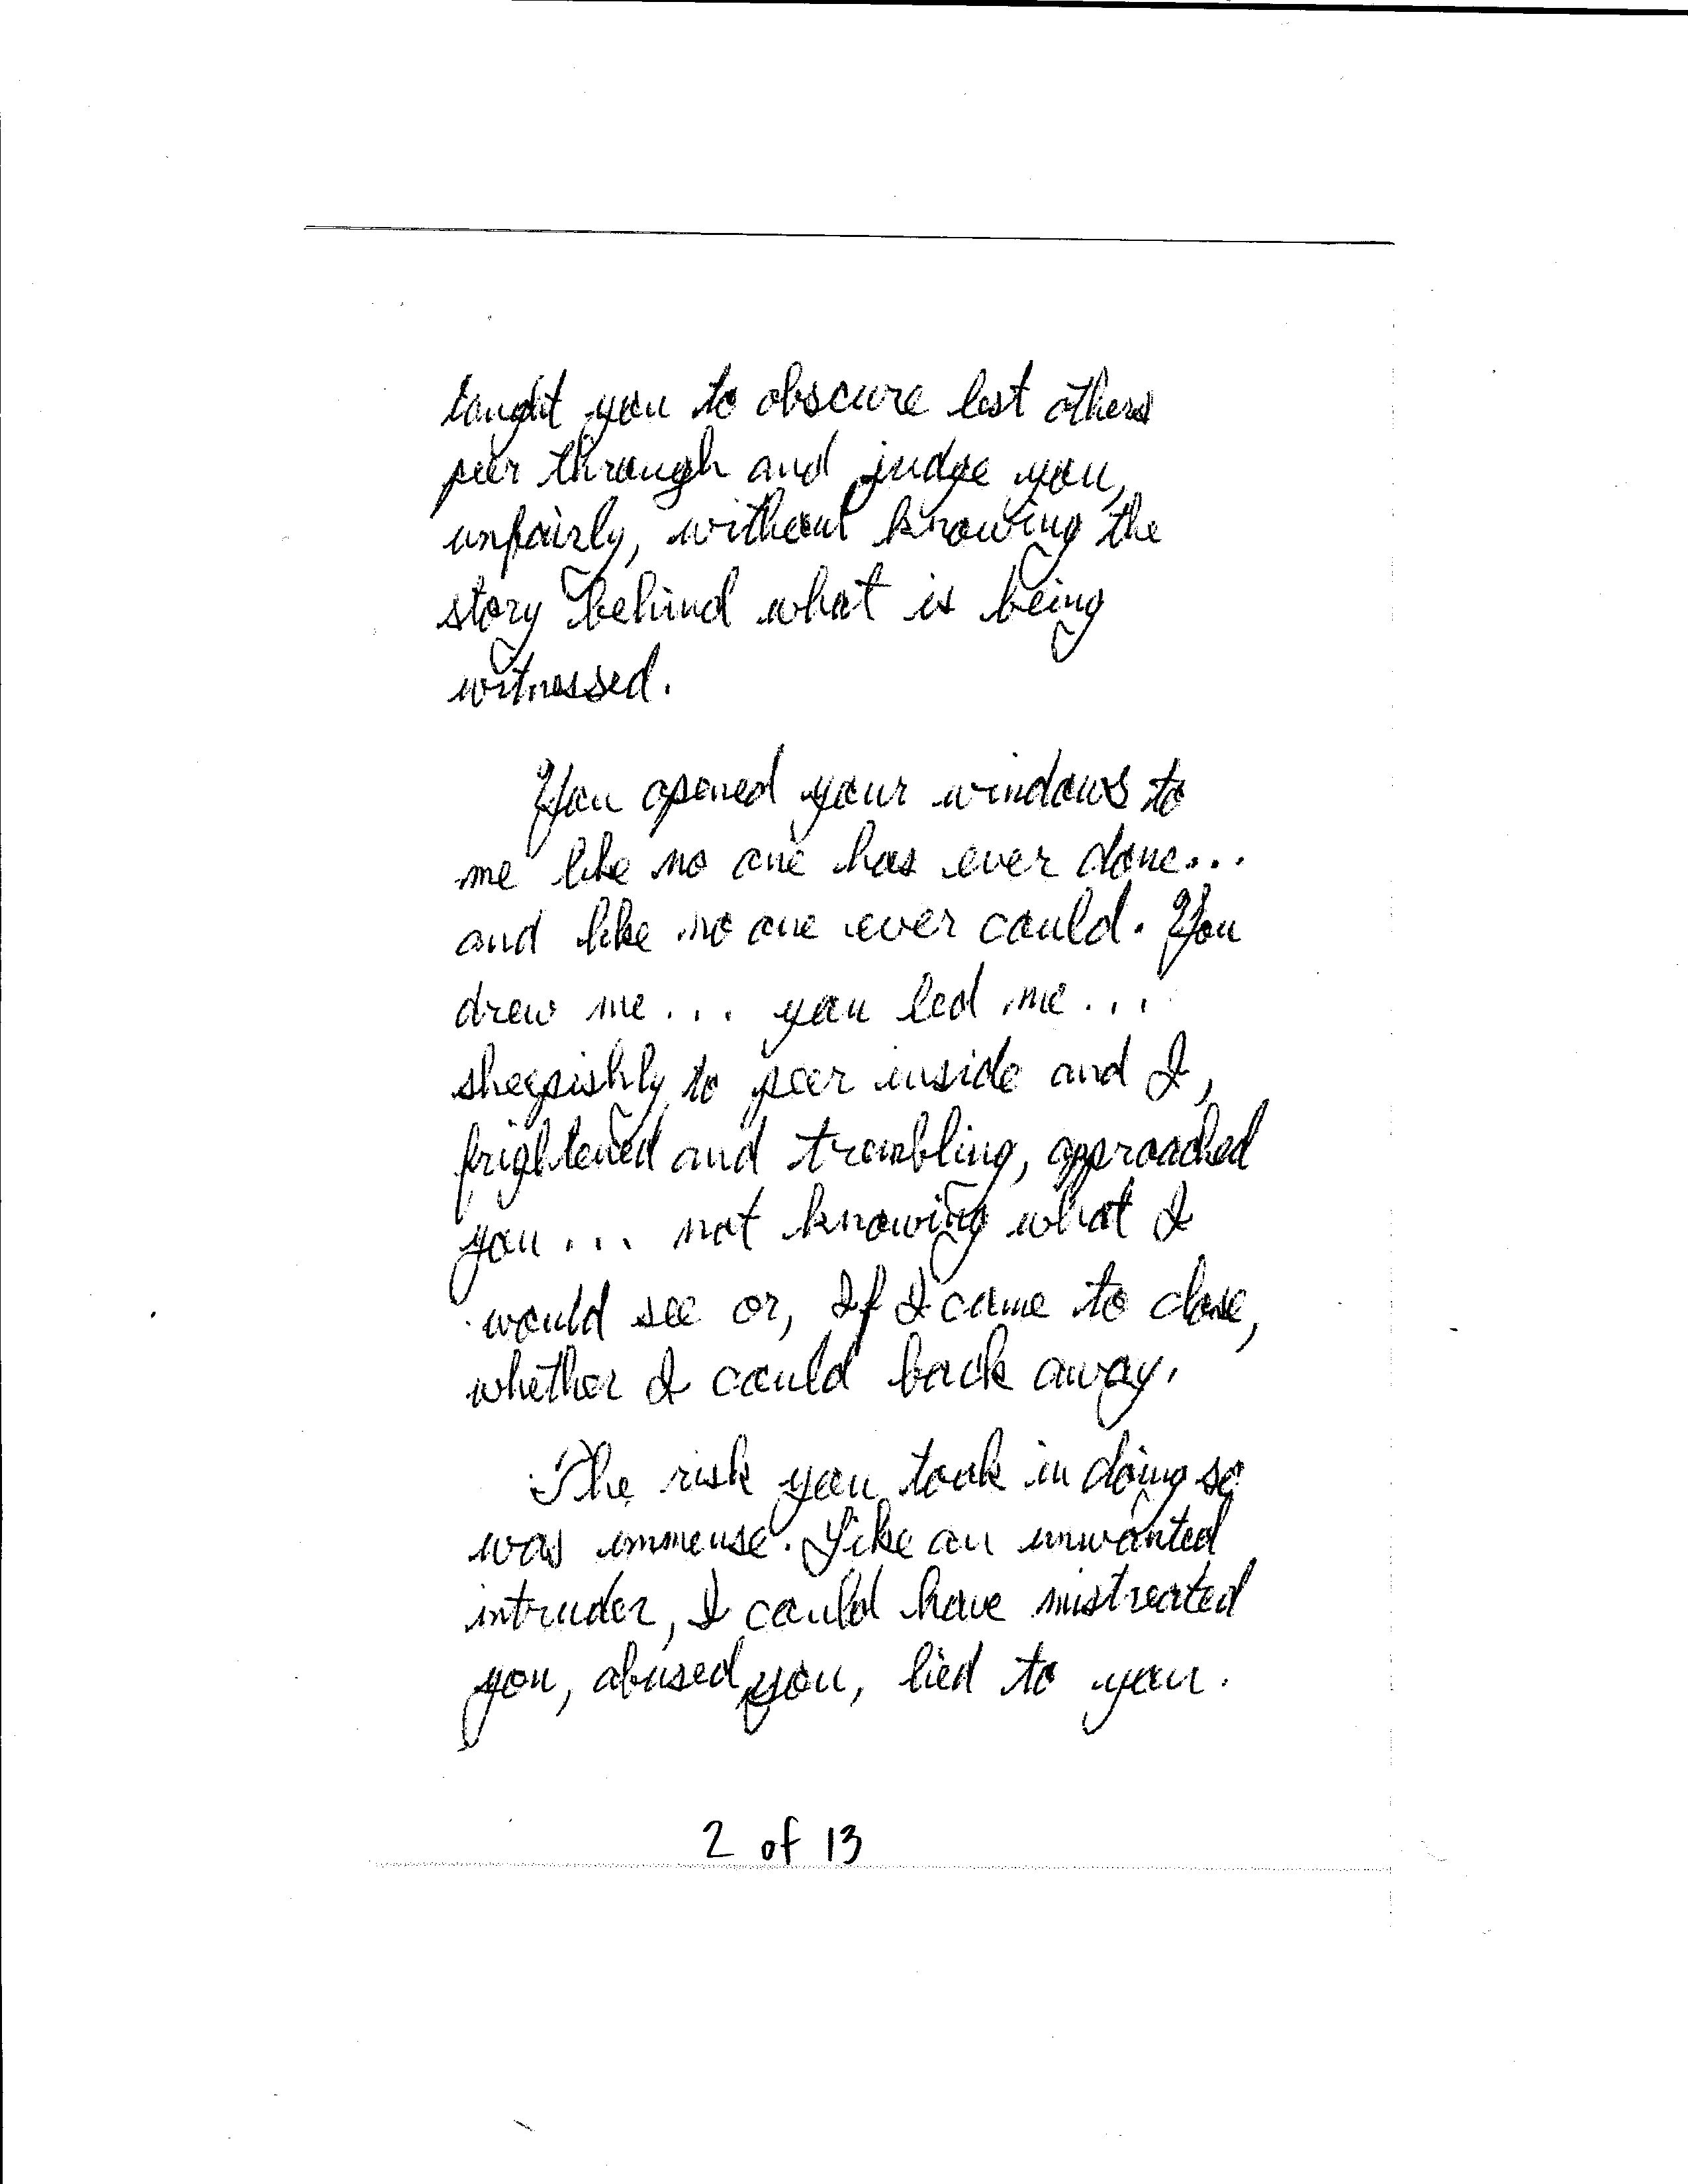 taught you to obscure lest others
peer through and judge you,
unfairly, without knowing the
story behind what is being
witnessed.
You opened your windows to
me like no one has ever done...
and like no one ever could. You
drew me... you led me...
sheepishly to peer inside and I,
frightened and trembling, approached
you... not knowing what I
would see or, If I came to close,
whether I could back away.
The risk you took in doing so
was immense. Like an unwanted
intruder, I could have mistreated
you, abused you, lied to you.
2 of 13